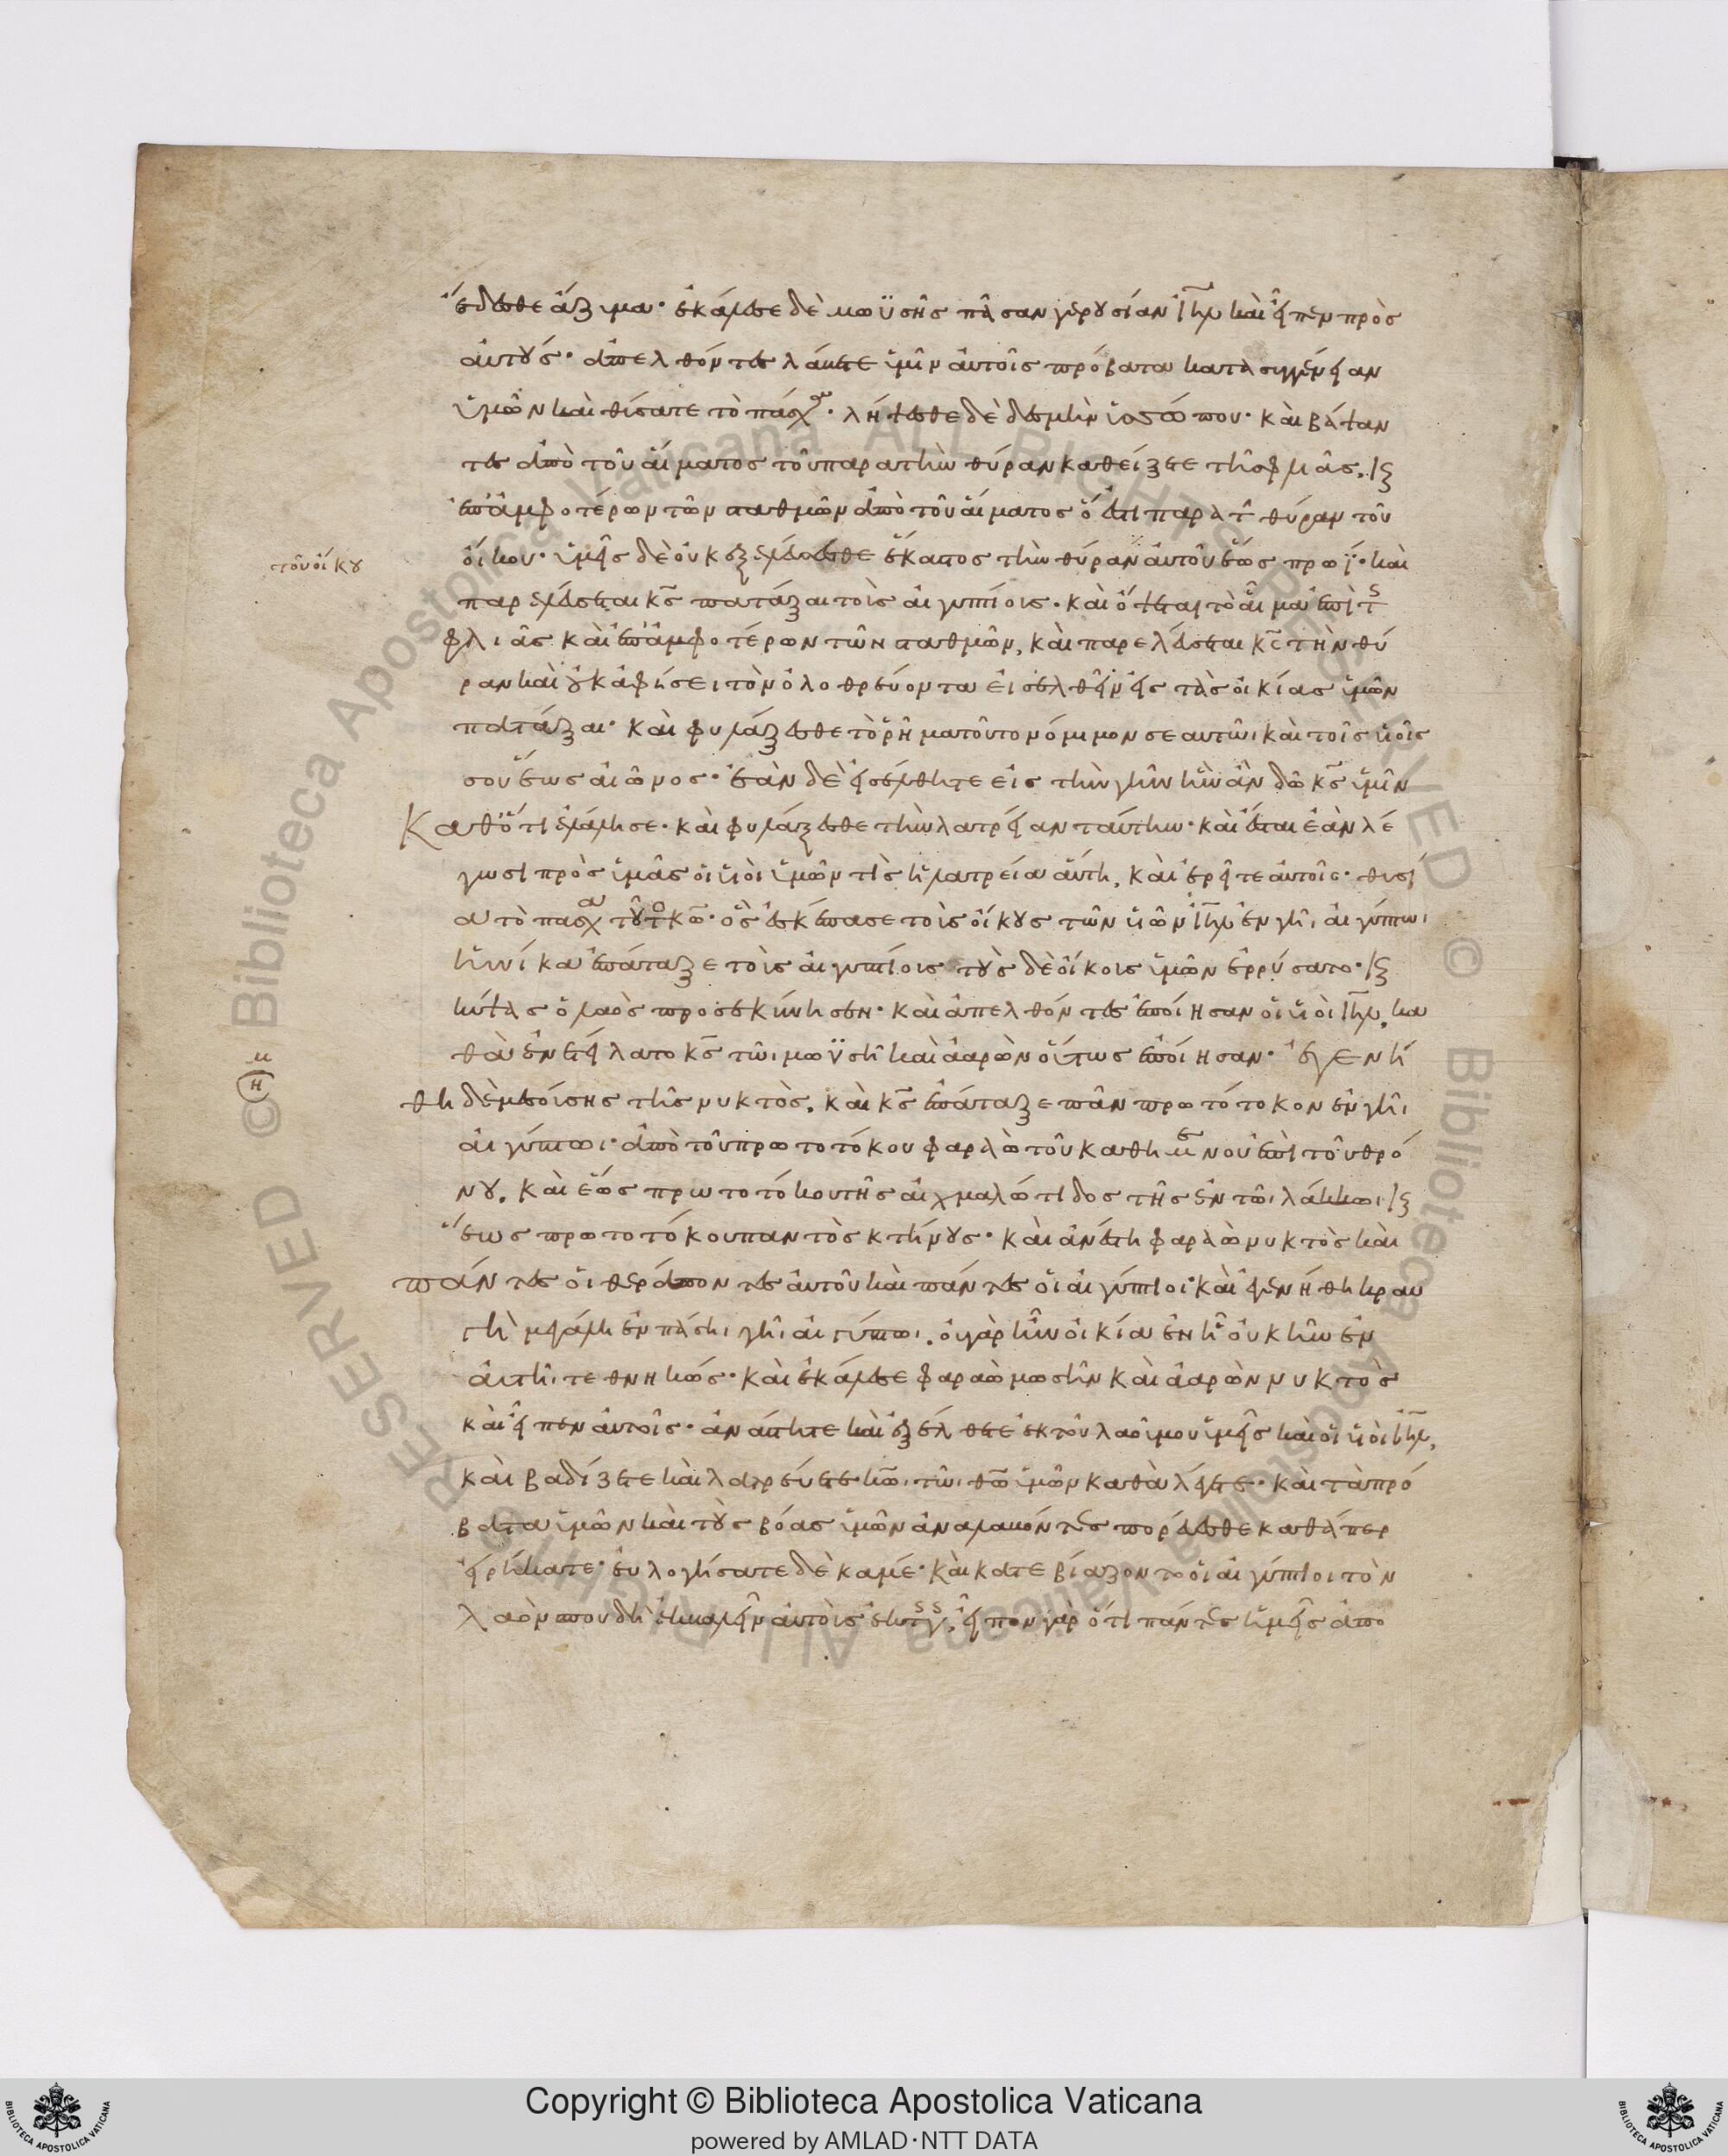 ἔδεσθε ἄζυμα· ἐκάλεσε δὲ μωϋσῆς πᾶσαν γερουσίαν ιηλ καὶ εἶπεν πρὸς
αὐτούς· ἀπελθόντες λάβετε ὑμῖν αὐτοῖς πρόβατα κατὰ συγγένειαν
ὑμῶν καὶ θύσατε τὸ πάσχα· λήψεσθε δὲ δεσμὴν ὑσσώπου· καὶ βάψαν
τες ἀπὸ τοῦ αἵματος τοῦ παρὰ τὴν θύραν καθείξετε τῆς φλιᾶς, κ
ἐπ' ἀμφοτέρων τῶν σταθμῶν ἀπὸ τοῦ αἵματος ὅ ἐστι παρὰ τ θύραν τοῦ
τοῦ οἴκου
οἴκου· ὑμεῖς δὲ οὐκ ἐξελεύσεσθε ἕκαστος τὴν θύραν αὐτοῦ ἕως πρωΐ· καὶ
παρελεύσεται κς πατάξαι τοὺς αἰγυπτίους· καὶ ὄψεται τὸ αἷμα ἐπὶ τς
φλιᾶς καὶ ἐπ' ἀμφοτέρων τῶν σταθμῶν, καὶ παρελεύσεται κς τὴν θύ
ραν καὶ οὐκ ἀφήσει τὸν ὀλοθρεύοντα εἰσελθεῖν εἰς τὰς οἰκίας ὑμῶν
πατάξαι· καὶ φυλάξεσθε τὸ ῥῆμα τοῦτο νόμιμον σεαυτῶι καὶ τοῖς υἱοῖς
σου ἕως αἰῶνος· ἐὰν δὲ εἰσέλθητε εἰς τὴν γῆν ἣν ἂν δῶ κς ὑμῖν
Καθότι ἐλάλησε· καὶ φυλάξεσθε τὴν λατρείαν ταύτην· καὶ ἔσται ἐὰν λέ
γωσι πρὸς ὑμᾶς οἱ υἱοὶ ὑμῶν τίς ἡ λατρεία αὕτη, καὶ ἐρεῖτε αὐτοῖς· θυσί
α τὸ πασχα τοῦτο κω· ὃς ἐσκέπασε τοὺς οἴκους τῶν υἱῶν ιηλ ἐν γῆι αἰγύπτωι
ἡνίκα ἐπάταξε τοὺς αἰγυπτίους τοὺς δὲ οἴκους ὑμῶν ἐρρύσατο· κ
κύψας ὁ λαὸς προσεκύνησεν· καὶ ἀπελθόντες ἐποίησαν οἱ υἱοὶ ιηλ, κα
θὰ ἐνετείλατο κς τῶι μωϋσῆ καὶ ἀαρὼν οὕτως ἐποίησαν· ἐγενή
θη δὲ μεσούσης τῆς νυκτὸς, καὶ κς ἐπάταξε πᾶν πρωτότοκον ἐν γῆι
αἰγύπτωι· ἀπὸ τοῦ πρωτοτόκου φαραὼ τοῦ καθημένου ἐπὶ τοῦ θρό
νου, καὶ ἕως πρωτοτόκου τῆς αἰχμαλώτιδος τῆς ἐν τῶι λάκκωι κ
ἕως πρωτοτόκου παντὸς κτήνους· καὶ ἀνέστη φαραὼ νυκτὸς καὶ
πάντες οἱ θεράποντες αὐτοῦ καὶ πάντες οἱ αἰγύπτιοι· καὶ ἐγενήθη κραυ
γὴ μεγάλη ἐν πάσηι γῆι αἰγύπτωι. οὐ γὰρ ἦν οἰκία ἐν ἧ οὐκ ἦν ἐν
αὐτῆι τεθνηκώς· καὶ ἐκάλεσε φαραὼ μωσῆν καὶ ἀαρὼν νυκτὸς
καὶ εἶπεν αὐτοῖς· ἀνάστητε καὶ ἐξέλθετε ἐκ τοῦ λαοῦ μου ὑμεῖς καὶ οἱ υἱοὶ ιηλ,
καὶ βαδίζετε καὶ λατρεύετε κω τῶι θω ὑμῶν καθὰ λέγετε· καὶ τὰ πρό
βατα ὑμῶν καὶ τοὺς βόας ὑμῶν ἀναλαβόντες πορεύεσθε καθάπερ
εἰρήκατε· εὐλογήσατε δὲ καμέ· καὶ κατεβιάζοντο οἱ αἰγύπτιοι τὸν
λαὸν σπουδῆ ἐκβαλεῖν αὐτοὺς ἐκ τς γς, εἶπον γὰρ ὅτι πάντες ἡμεῖς ἀπο